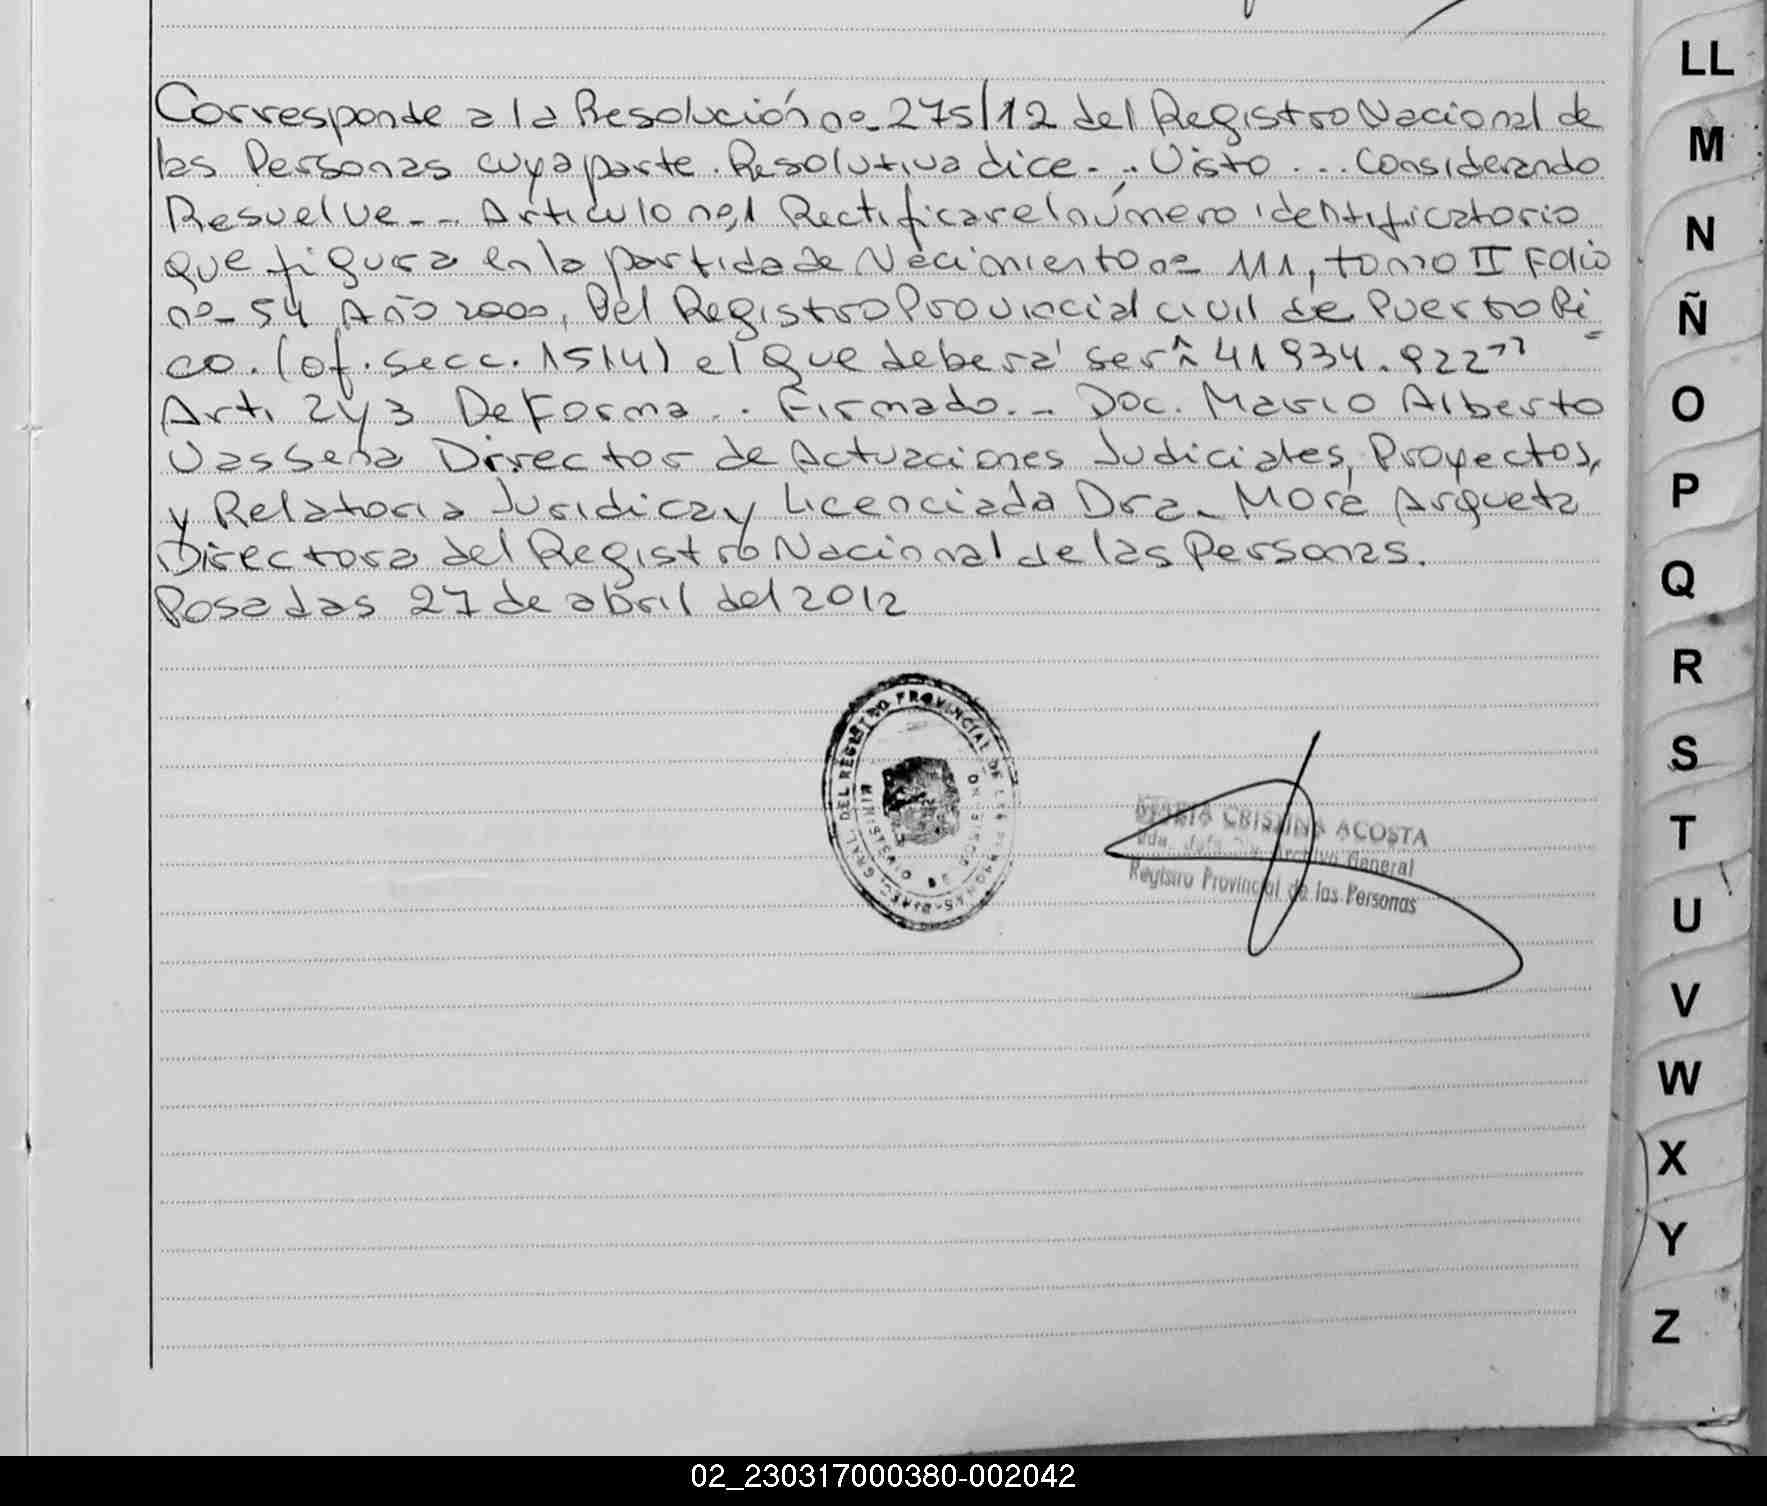 Corresponde a la Resolución nº 275/12 del Registro Nacional de
las Personas cuya parte. Resolutiva dice - ; Visto ... Considerando
Resuelve - .. Artículo nº1 Rectificar el número identificatorio
que figura en la partida de Nacimiento nº 111, tomo II Folio
nº- 54 Año 2000, Del Registro Provincial civil de Puerto Ri
co. (of. secc. 1514) el que deberá ser " 41 934. 922"
Art, 2 y 3 De Forma .. Firmado. - Doc. Mario Alberto
Vassena Director de Actuaciones Judiciales, Proyectos,
y Relatoria Juridica y Licenciada Dra. Mora Arqueta
Directora del Registro Nacional de las Personas.
Posadas 27 de abril del 2012
GRAL. DEL REGISTRO PROVINCIAL DE LAS PERSONAS
MINISTERIO DE
MARIA CRISTINA ACOSTA
Archivo General
Registro Provincial de las Personas
LL
M
N
Ñ
O
P
Q
R
S
T
U
V
W
X
Y
Z
02_230317000380-002042